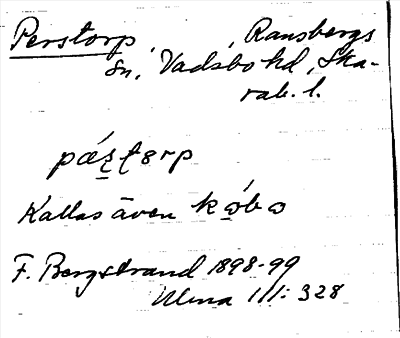 Perstorp, Ransbergs
sn, Vadsbo hd, Ska-
rab. l.
pǽʂʈɵrp
Kallas även kɷ́bɷ
F. Bergstrand 1898-99
Ulma 1/1: 328